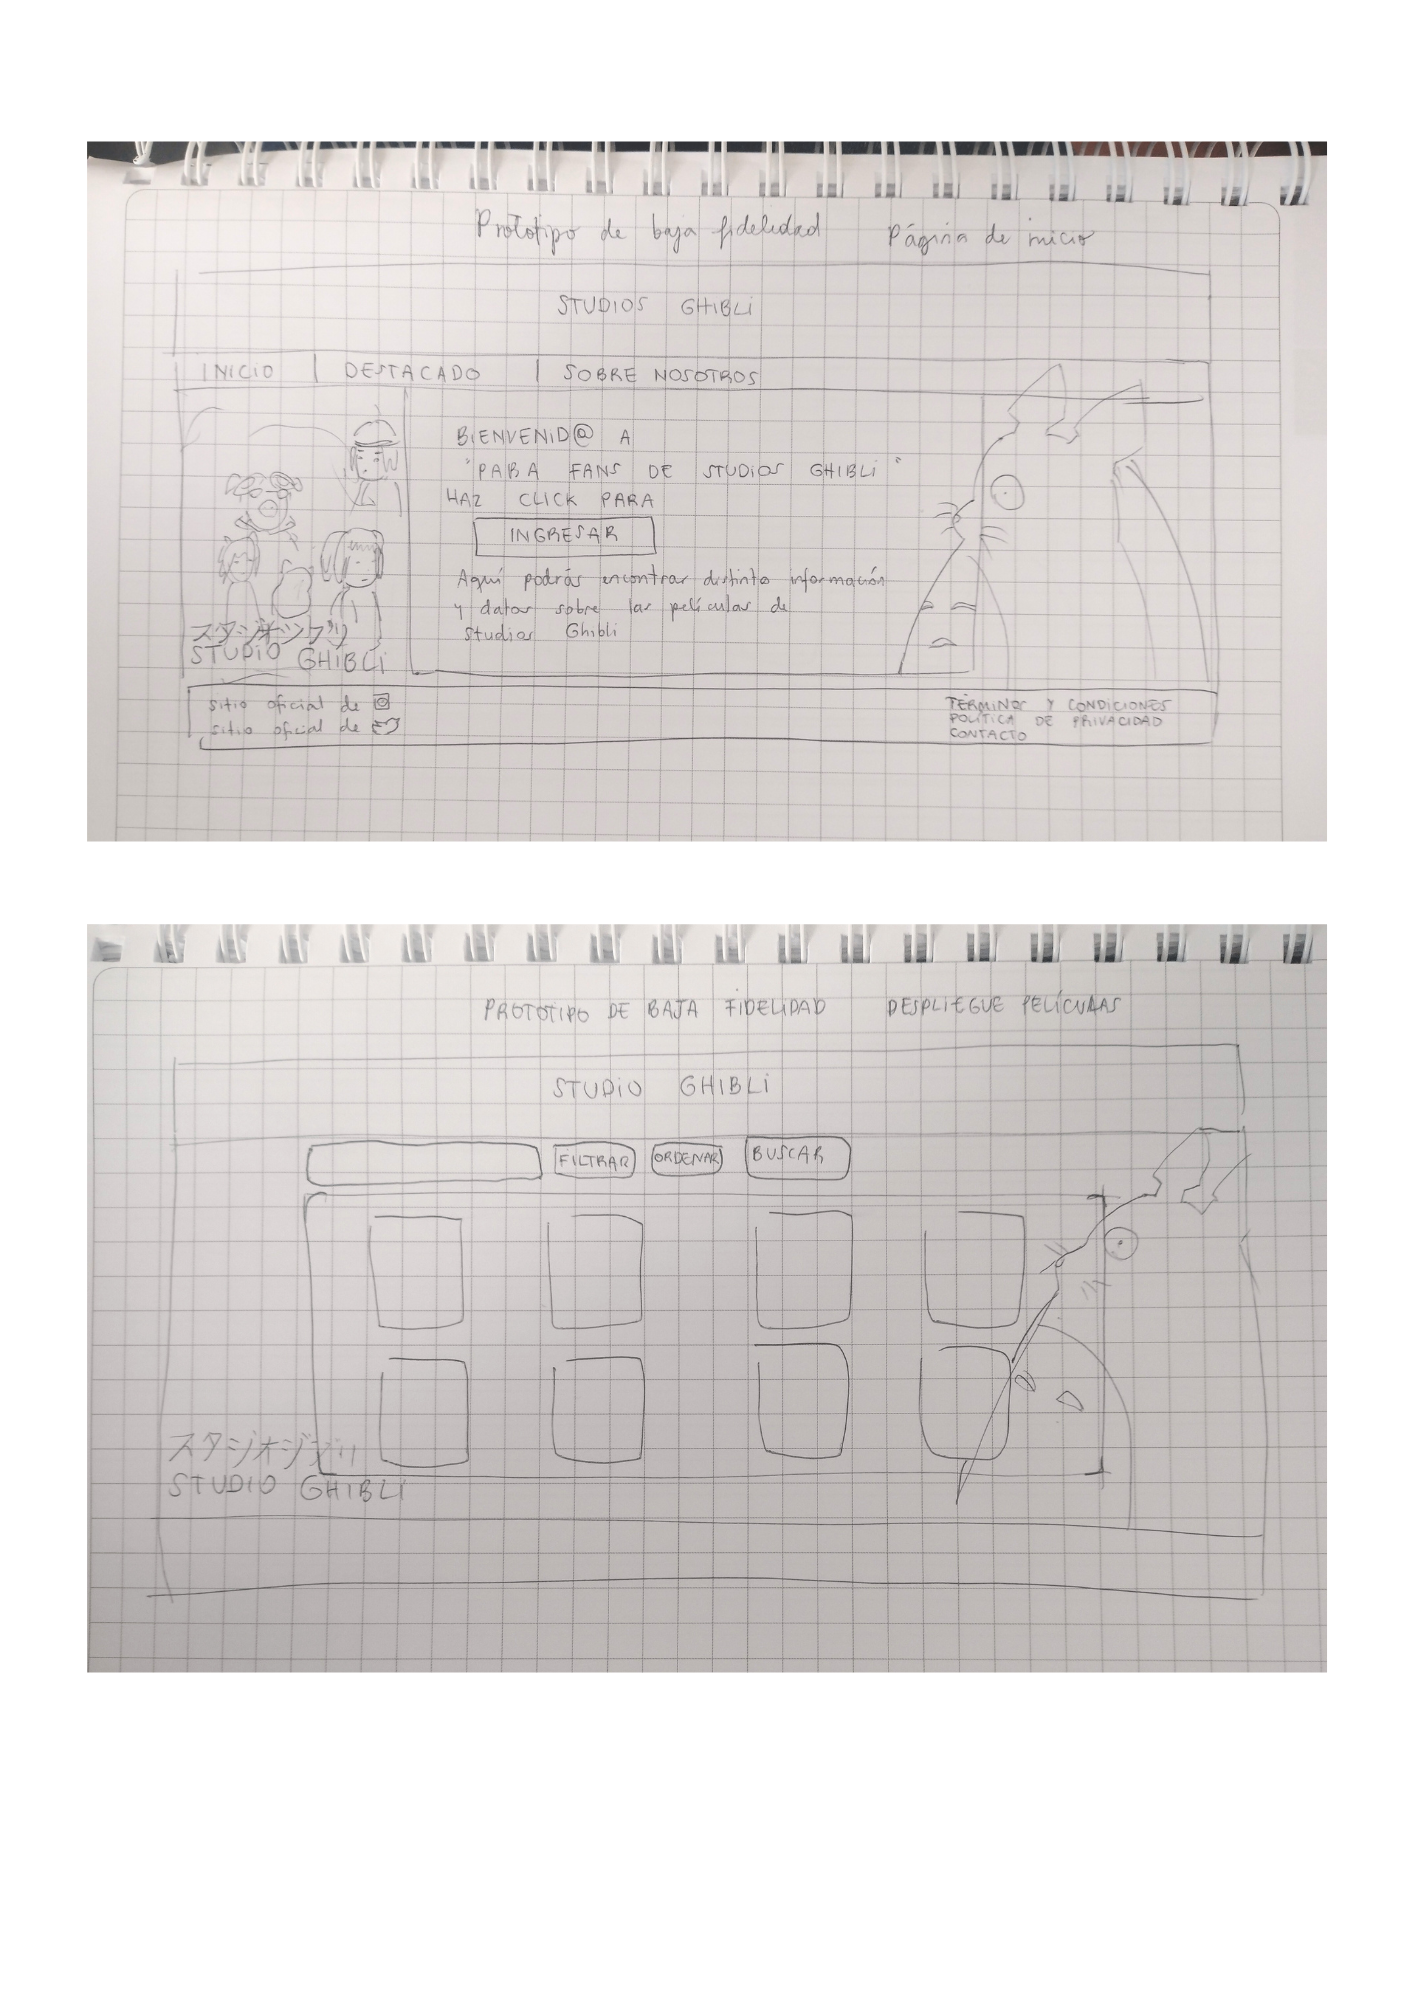 Prototipo de baja fidelidad Página de inicio
STUDIOS GHIBLI
INICIO | DESTACADO | SOBRE NOSOTROS
BIENVENID@ A
"PARA FANS DE STUDIOS GHIBLI"
HAZ CLICK PARA
INGRESAR
Aquí podrás encontrar distinta información
y datos sobre las películas de
Studios Ghibli
スタジオジブリ
STUDIO GHIBLI
sitio oficial de
sitio oficial de
TÉRMINOS Y CONDICIONES
POLÍTICA DE PRIVACIDAD
CONTACTO
PROTOTIPO DE BAJA FIDELIDAD DESPLIEGUE PELÍCULAS
STUDIO GHIBLI
FILTRAR ORDENAR BUSCAR
スタジオジブリ
STUDIO GHIBLI